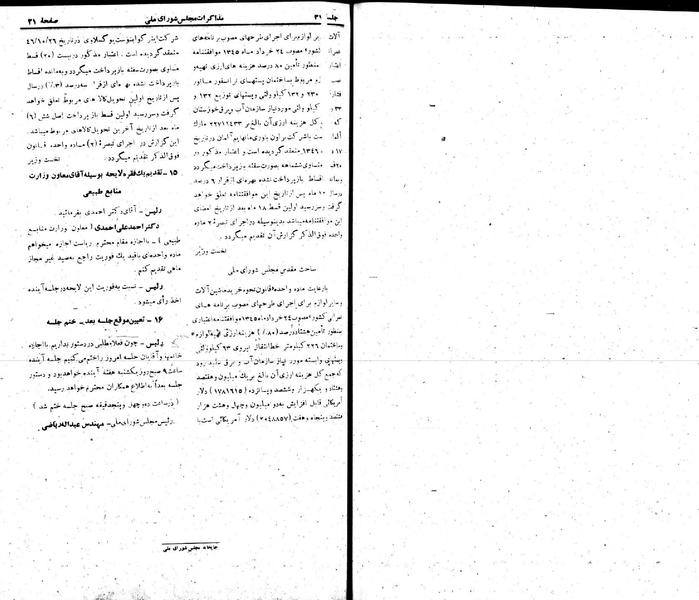 جلسه ۳۱
مذاکرات مجلس شورای ملی
صفحهٔ ۳۱
لوازم برای اجرای طرحهای مصوب برنامه‌های
کشور» مصوب ۲۴ خرداد ماه ۱۳۴۵ موافقتنامه
منظور تأمین ۸۰ درصد هزینه های ارزی تهیه و
مربوط بساختمان پستهای ترانسفور ماتور
۲۳۰ و ۱۳۲ کیلوواتی و پستهای توزیع ۱۳۲ و
کیلو واتی مورد نیاز سازمان آب و برق خوزستان
که کل هزینه ارزی آن بالغ بر ۲۲۷۱۲۴۳۳ مارک
است با شرکت براون باوری مانهایم آلمان در تاریخ
۱۳۴۶ منعقد گردیده است و اعتبار مذکور در
متساوی ششماهه بصورت سفته بازپرداخت میگردد
اقساط بازپرداخت نشده بهره‌ای از قرار ۶ درصد
درسال ۱۰ ماه پس از تاریخ این موافقتنامه تعلق خواهد
گرفت و سررسید اولین قسط ۱۸ ماه بعد از تاریخ امضای
این موافقتنامه میباشد بدینوسیله در اجرای تبصره ۲ ماده
واحده فوق‌الذکر گزارش آن تقدیم میگردد.
نخست وزیر
ساحت مقدس مجلس شورای ملی
بارعایت ماده واحده «قانون نحوه خرید ماشین آلات
و سایر لوازم برای اجرای طرحهای مصوب برنامه های
عمرانی کشور» مصوب ۲۴ خرداد ماه ۱۳۴۵ موافقتنامه اعتباری
بمنظور تأمین هشتاد درصد (۸۰٪) هزینه ارزی تهیه لوازم
ساختمان ۲۲۶ کیلومتر خط انتقال نیروی ۶۳ کیلوولتی
و پستهای وابسته مورد نیاز سازمان آب و برق
که جمع کل هزینه ارزی آن بالغ بر یک میلیون و هفتصد
و هشتاد و یکهزار و ششصد و پانزده (۱۷۸۱۶۱۵) دلار
آمریکائی قابل افزایش به دو میلیون و چهل و هشت هزار و
هشتصد و پنجاه و هفت (۲۰۴۸۸۵۷) دلار آمریکائی است با
شرکت اینرگو اینوست یوگسلاوی در تاریخ ۴۶/۱۰/۲۶
منعقد گردیده است. اعتبار مذکور در بیست (۲۰) قسط
مساوی بصورت سفته بازپرداخت میگردد و به مانده اقساط
بازپرداخت نشده بهره‌ای از قرار سه درصد (۳٪) در سال
پس از تاریخ اولین تحویل کالا های مربوط تعلق خواهد
گرفت و سررسید اولین قسط بازپرداخت اصل شش (۶)
ماه بعد از تاریخ آخرین تحویل کالاهای مربوط میباشد.
این گزارش در اجرای تبصره (۲) ماده واحده قانون
فوق‌الذکر تقدیم میگردد. نخست وزیر
۱۵ - تقدیم یک فقره لایحه بوسیله آقای معاون وزارت
منابع طبیعی
رئیس - آقای دکتر احمدی بفرمائید.
دکتر احمد علی احمدی (معاون وزارت منابع
طبیعی) - با اجازه مقام محترم ریاست اجازه میخواهم
ماده واحده‌ای با قید یک فوریت راجع به صید غیر مجاز
ماهی تقدیم کنم.
رئیس - نسبت به فوریت این لایحه در جلسه آینده
اخذ رأی میشود.
۱۶ - تعیین موقع جلسه بعد - ختم جلسه
رئیس - چون فعلا مطلبی در دستور نداریم با اجازه
خانمها و آقایان جلسه امروز را ختم می‌کنیم جلسه آینده
ساعت ۹ صبح روز یکشنبه هفته آینده خواهد بود و دستور
جلسه بعداً به اطلاع همکاران محترم خواهد رسید.
(در ساعت ده و چهل و پنج دقیقه صبح جلسه ختم شد)
رئیس مجلس شورای ملی - مهندس عبدالله ریاضی
چاپخانه مجلس شورای ملی